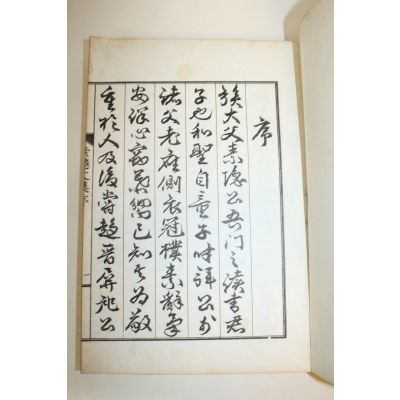 序
族大父素隱公吾門之讀書君
子也和聖自童子時拜公於
諸父老座側衣冠樸素辭氣
安詳心竊慕已知其為敬
重於人及後嘗趨晉屛跪公